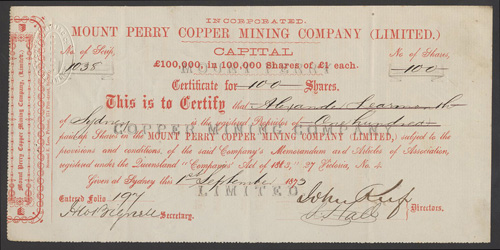 INCORPORATED.
MOUNT PERRY COPPER MINING COMPANY (LIMITED.)
CAPITAL
£100,000, in 100,000 Shares of £1 each.
No. of Scrip, No. of Shares,
1038 100
MOUNT PERRY
Certificate for 100 Shares.
This is to Certify that
of Sydney is the registered Proprietor of One hundred
COPPER MINING COMPANY
paid-up Shares in the MOUNT PERRY COPPER MINING COMPANY (LIMITED), subject to the
provisions and conditions, of the said Company's Memorandum and Articles of Association,
registered under the Queensland "Companies' Act of 1863," 27 Victoria, No. 4.
Given at Sydney this 1st September 1873
LIMITED
Entered Folio 197
Secretary. Directors.
Mount Perry Copper Mining Company, (Limited.)